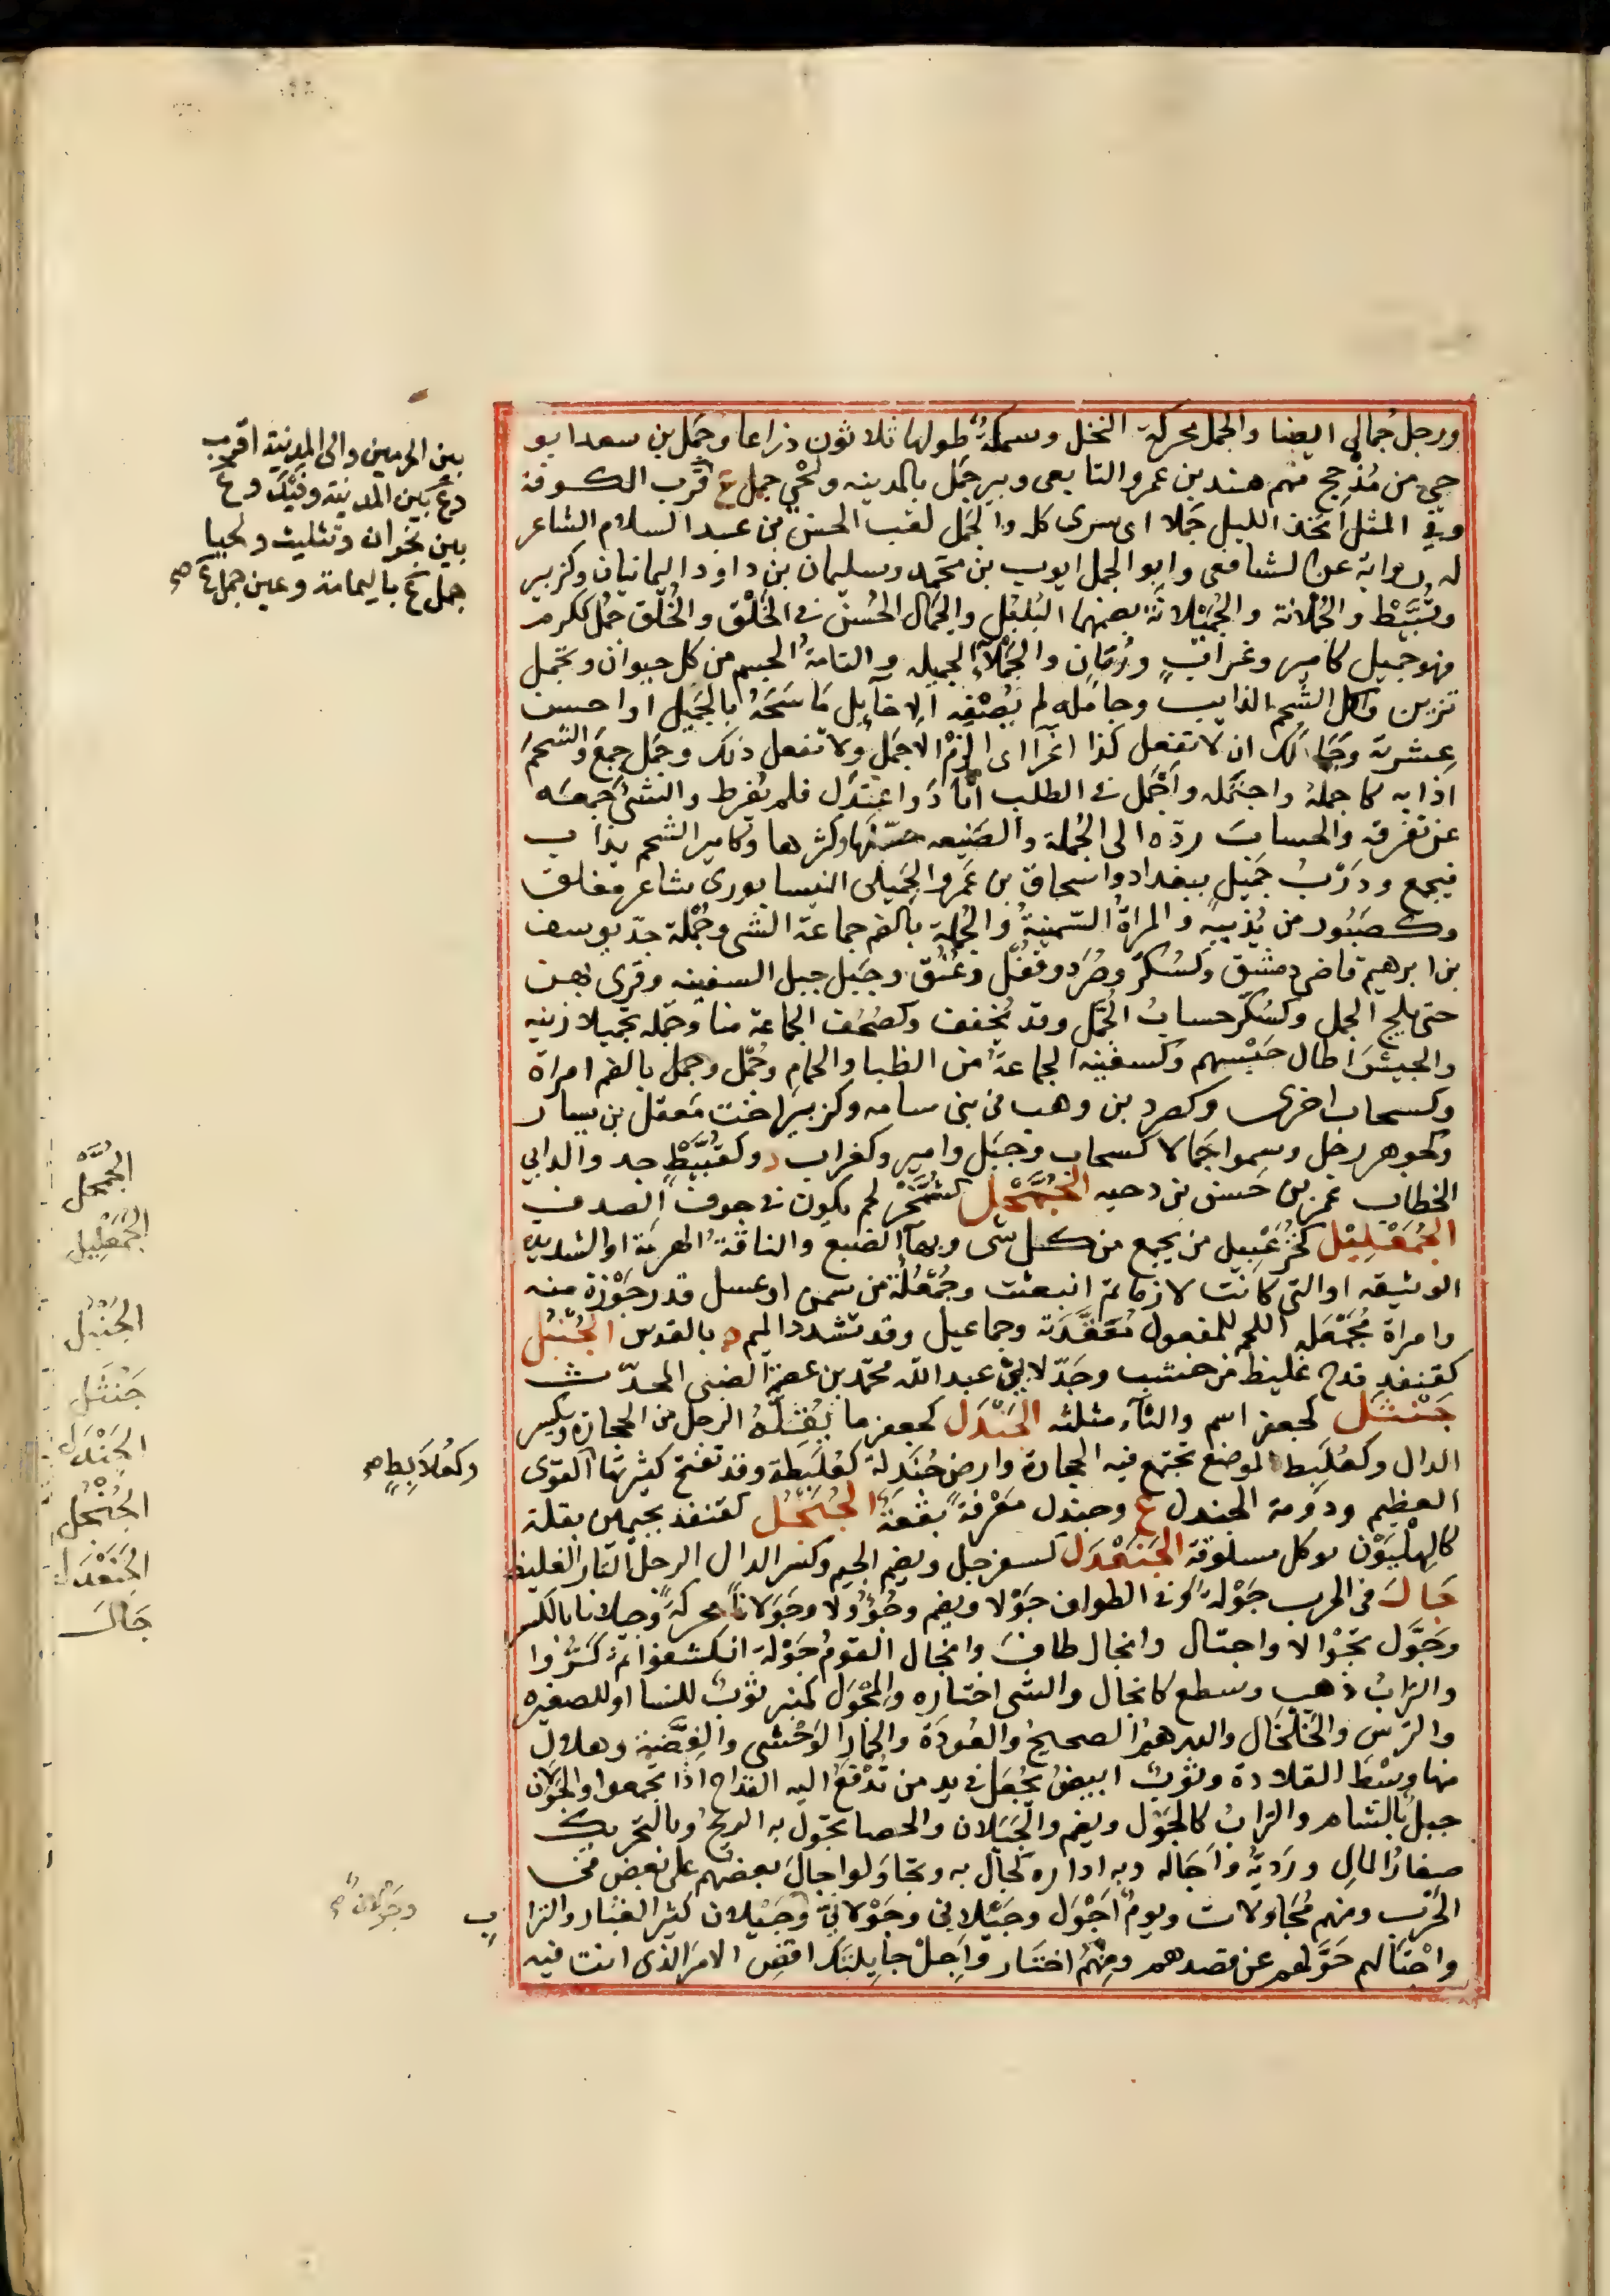 ورجل جمالي ايضا والجمل محركة النخل وسمكة طولها ثلاثون ذراعا وجمل بن سعد ابو
حي من مذحج منهم هند بن عمرو التابعي وبير جمل بالمدينه ولحي جمل ع قرب الكوفة
وفي المثل اتخذ الليل جملا اى سرى كله والجمل لقب الحسن بن عبد السلام الشاعر
له رواية عن الشافعي وابو الجمل ايوب بن محمد وسليمان بن داود اليمانيان وكزبير
وقبيط والجملانة والجميلانة بضمهما البلبل والجمال الحسن في الخلق والخلق جمل ككرم
فهو جميل كامير وغراب ورمان والجملاء الجميله والتامة الجسم من كل حيوان وتجمل
تزين واكل الشحم الذايب وجامله لم يصفه الاخا بل ماسحه بالجميل او احسن
عشرته وجمالك ان لا تفعل كذا اغراء اى الزم الاجمل ولا تفعل ذلك وجمل جمع والشحم
اذابه كاجمله واجتمله واجمل في الطلب اتاد واعتدل فلم يفرط والشئ جمعه
عن تفرقه والحساب رده الى الجملة والصنيعه حسنها وكثرها وكامير الشحم يذاب
فيجمع ودرب جميل ببغداد واسحاق بن عمرو الجميلى النيسابورى شاعر مفلق
وكصبور من يذيبه والمراة السمينة والجملة بالضم جماعة الشى وجملة جد يوسف
بن ابرهيم قاضى دمشق وكسكر وصرد وقفل وعنق وجبل حبل السفينه وقرى بهن
حتى يلج الجمل وكسكر حساب الجمل وقد يخفف وكصحف الجماعة منا وجمله تجميلا زينه
والجيش اطال حبسهم وكسفينه الجماعة من الظبا والحمام وجمل وجمل بالضم امراة
وكسحاب اخرى وكصرد بن وهب في بني سامه وكزبير اخت معقل بن يسار
وكجوهر رجل وسموا جمالا كسحاب وجبل وامير وكغراب د وكقبيط جد والد ابي
الخطاب عمر بن حسن بن دحيه الجمحل كشمخر لحم يكون في جوف الصدف
الجمعليل كخزعبيل من يجمع من كل شى وبهاء الضبع والناقة الهرمة او الشديده
الوثيقه او التي كانت لازمام ثم انبعثت وجمعلة من سمن او عسل قدر جوزة منه
وامراة مجمعله اللحم للمفعول معقدته وجماعيل وقد تشدد الميم ة بالقدس الجنبل
كقنفذ قدح غليظ من خشب وجد لابي عبد الله محمد بن الضبى المحدث
جنثل كجعفر اسم والثاء مثلثه الجندل كجعفر ما يقله الرجل من الحجارة وتكسر
الدال وكعلبط الموضع تجتمع فيه الحجارة وارض جندلة كعلبطة وقد تفتح كثيرتها القوى
العظيم ودومة الجندل ع وجندل معرفة بقعة الجنجل كقنفذ بجيمين بقلة
كالهليون توكل مسلوقة الجنعدل كسفرجل وبضم الجيم وكسر الدال الرجل التار الغليظ
جال في الحرب جولة وفي الطواف جولا ويضم وجوولا وجولانا محركة وجيلانا بالكسر
وجول تجوالا واجتال وانجال طاف وانجال القوم جولة انكشفوا ثم كروا
والتراب ذهب وسطع كانجال والشى اختاره والمجول كمنبر ثوب للنسا او للصغيره
والترس والخلخال والدرهم الصحيح والعوذة والحمار الوحشي والفضة وهلال
منها وسط القلادة وثوب ابيض يجعل في يد من تدفع اليه القداح اذا تجمعوا والجولان
جبل بالشام والتراب كالجول ويضم والجيلان والحصا تجول به الريح وبالتحريك
صغار المال ورديه واجاله وبه اداره كجال به وتجاولوا جال بعضهم على بعض في
الحرب ومنهم مجاولات ويوم اجول وجيلاني وجولاني وجيلان كثير الغبار والترا ب
واجتالهم حولهم عن قصدهم ومنهم اختار واجل جايلتك اقض الامر الذى انت فيه
بين الحرمين والى المدينة اقرب
وع بين المدينة وفيد وع
بين نجران وتثليث ولحيا
جمل ع باليمامة وعين جمل ع صح
الجمحل
الجمعليل
الجنبل
جنثل
الجندل
وكعلابط صح
الجنجل
الجنعدل
جال
وجولان صح